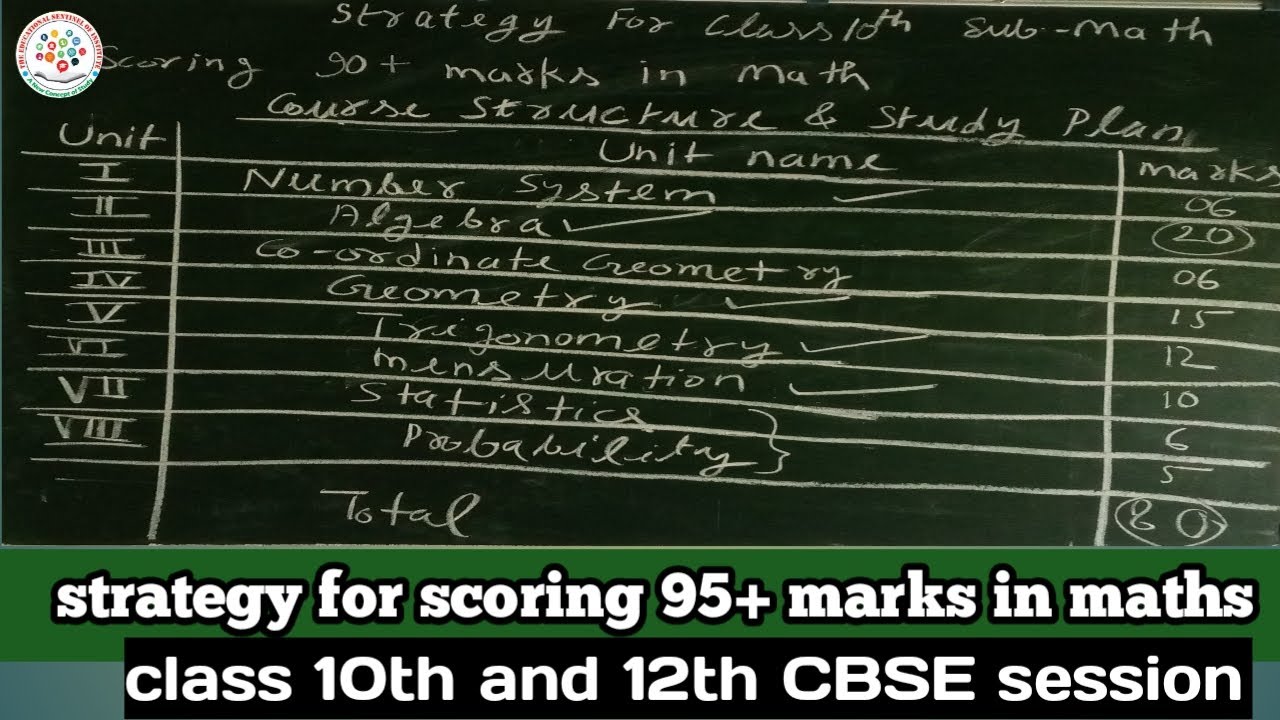 THE EDUCATIONAL SENTINEL OF INSTITUTE
A New Concept of Study
Strategy For Class 10th Sub-Math
Scoring 90+ marks in math
Course Structure & Study Plan
Unit Unit name marks
I Number System 06
II Algebra 20
III Co-ordinate Geometry 06
IV Geometry 15
V Trigonometry 12
VI mensuration 10
VII Statistics 6
VIII Probability 5
Total 80
strategy for scoring 95+ marks in maths
class 10th and 12th CBSE session